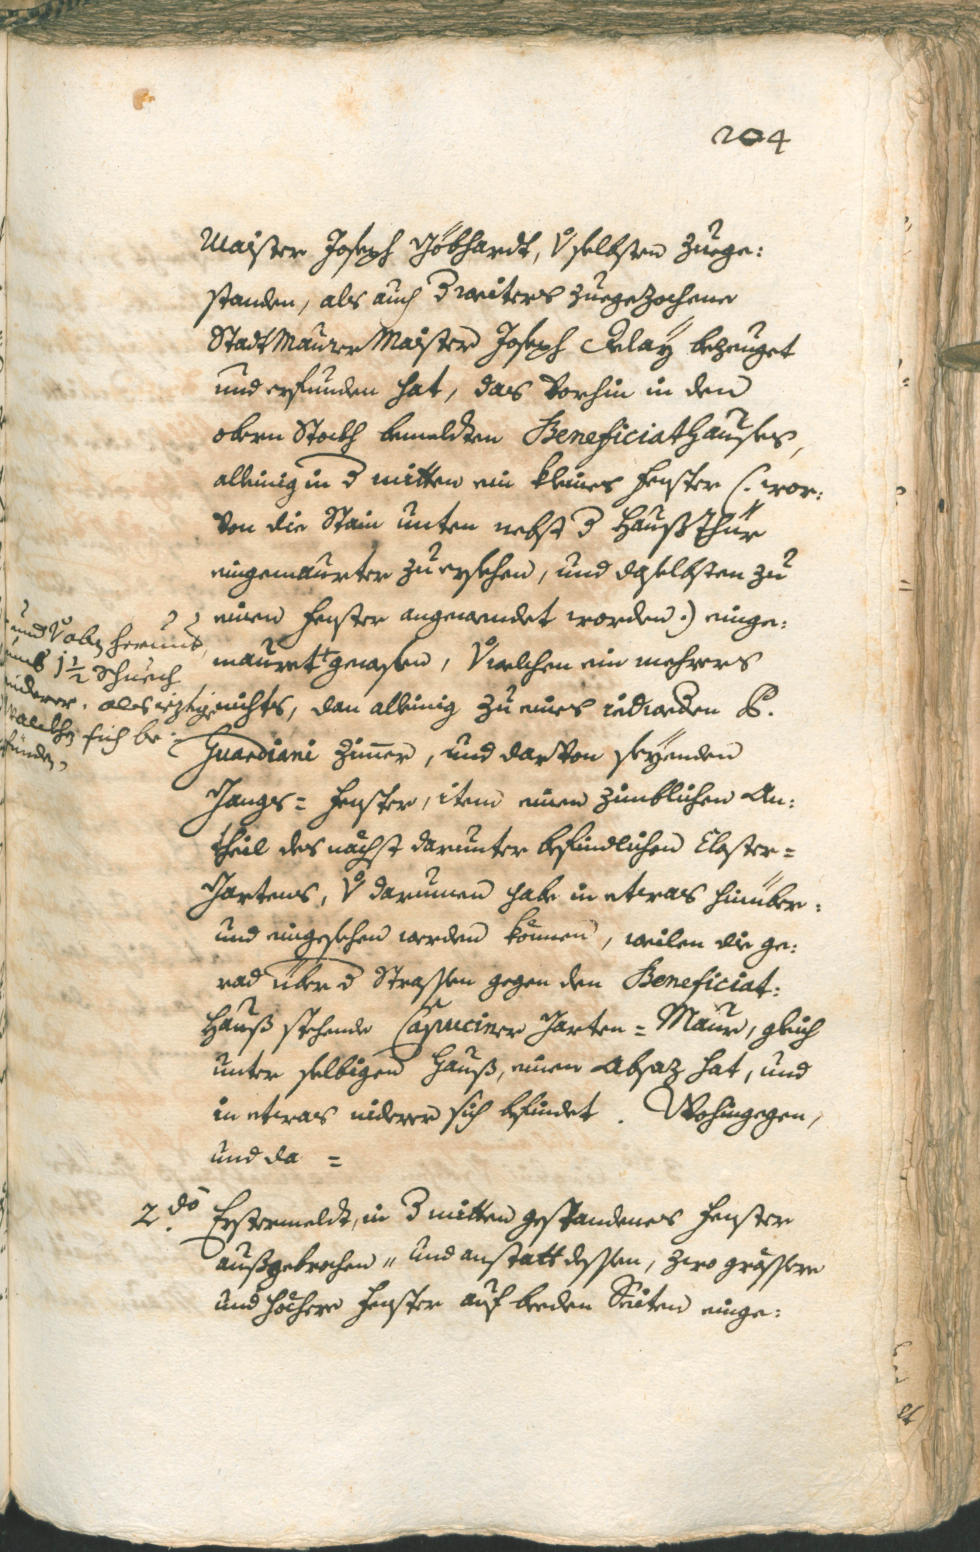 204
Maister Joseph Göbhardt, v selbsten zuege:
standen, als auch d weiters zuegezochene
Stadt Maurer Maister Joseph Delaÿ bezeuget
und erfunden hat, das vorhin in den
obern Stockh bemeldten Beneficiat Hauses,
alleinig in d mitten ein kleines fenster (: wor:
von die Stain unten nebst d Hauß Thür
eingemaurter zu ersehen, und daselbsten zu
einem fenster angewendet worden :) einge:
mauret gewesen, v welchen ein mehrers
nichts, dan alleinig zu eines iedweden P.
Guardiani Zimmer, und darvon seyenden
Gangs = fenster, item einen zimblichen An:
theil des nächst darunter befindlichen Closter =
Gartens, v darumen habe in etwas hinüber:
und eingesehen werden können, weilen die ge:
rad über d Strassen gegen den Beneficiat:
Hauß stehende Capuciner Garten = Maur, gleich
unter selbigen Hauß, einen Absaz hat, und
in etwas niderer sich befindet. Wohingegen,
und da =
und v oben herumb,
umb 1½ Schuech
niderer, als iezige
sich be:
funden,
2.do Erstermeldt, in d mitten gestandenes fenster
außgebrochen " und anstatt dessen, zwo grössere
und höchere fenster auf beeden Seiten einge: